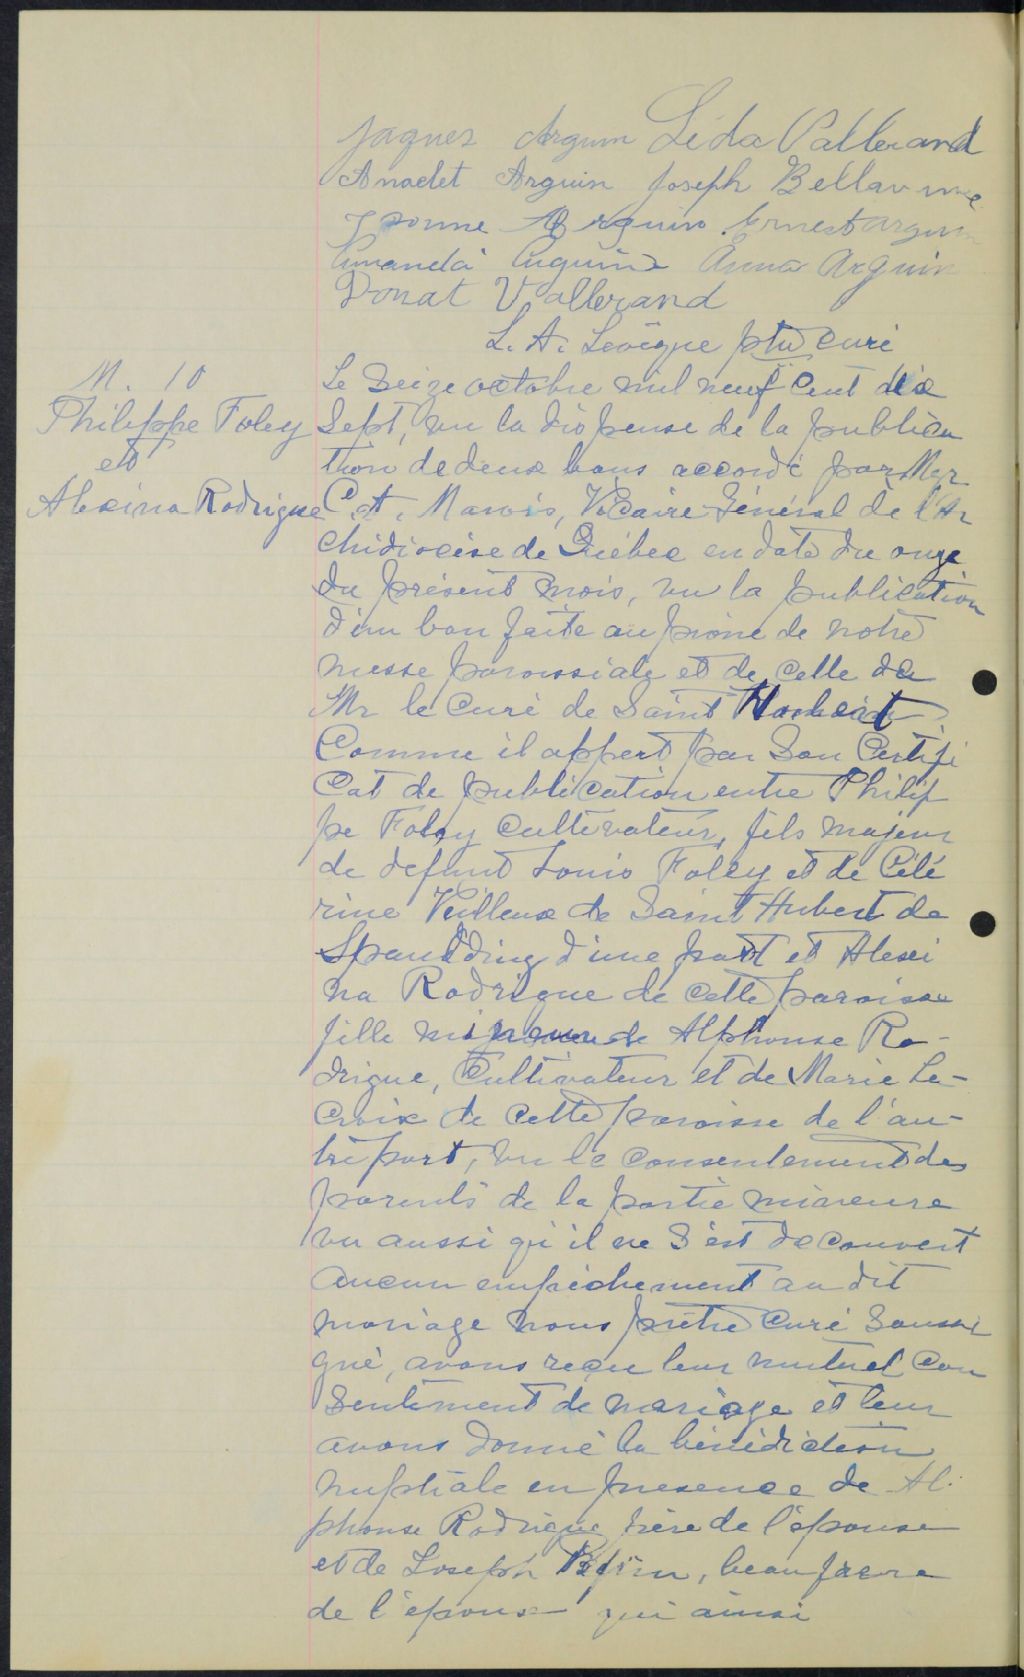 Jaques Arguin Léda Vallerand
Anaclet Arguin Joseph Bellavance
Yvonne Arguin Ernest Arguin
Amanda Arguin Anna Arguin
Donat Vallerand
L. A. Levêque ptre curé
M. 10
Philippe Foley
et
Alexina Rodrigue
Le Seize octobre mil neuf cent dix
Sept, vu la dispense de la publica
tion de deux bans accordé par Mgr
C. A. Marois, Vicaire Général de l'Ar
chidiocèse de Québec en date du onze
du présent mois, vu la publication
d'un ban faite au prône de notre
messe paroissiale et de celle de
Mr le Curé de Saint
Comme il appert par Son Certifi
cat de publication entre Philip
pe Foley Cultivateur, fils majeur
de defunt Louis Foley et de Célé
rine Veilleux de Saint Hubert de
Spaulding d'une part et Alexi
na Rodrigue de cette paroisse
fille mineure de Alphonse Ro-
drigue, Cultivateur et de Marie La-
croix de cette paroisse de l'au-
tre part, vu le consentement des
parents de la partie mineure
vu aussi qu'il ne s'est decouvert
aucun empêchement au dit
mariage nous prêtre Curé Soussi
gné, avons reçu leur mutuel Con
sentement de mariage et leur
avons donné la bénédiction
nuptiale en presence de Al.
phonse Rodrigue, père de l'épouse
et de Joseph, beau frère
de l'épouse qui ainsi